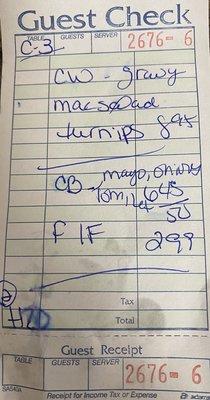 Guest Check
TABLE GUESTS SERVER
C-3 2676-6
CW - gravy
mac salad
turnips 895
CB - mayo, onion
Tom, Let 645
50
F IF 299
2
H20
Tax
Total
Guest Receipt
TABLE GUESTS SERVER
2676-6
SA640A Receipt for Income Tax or Expense adams